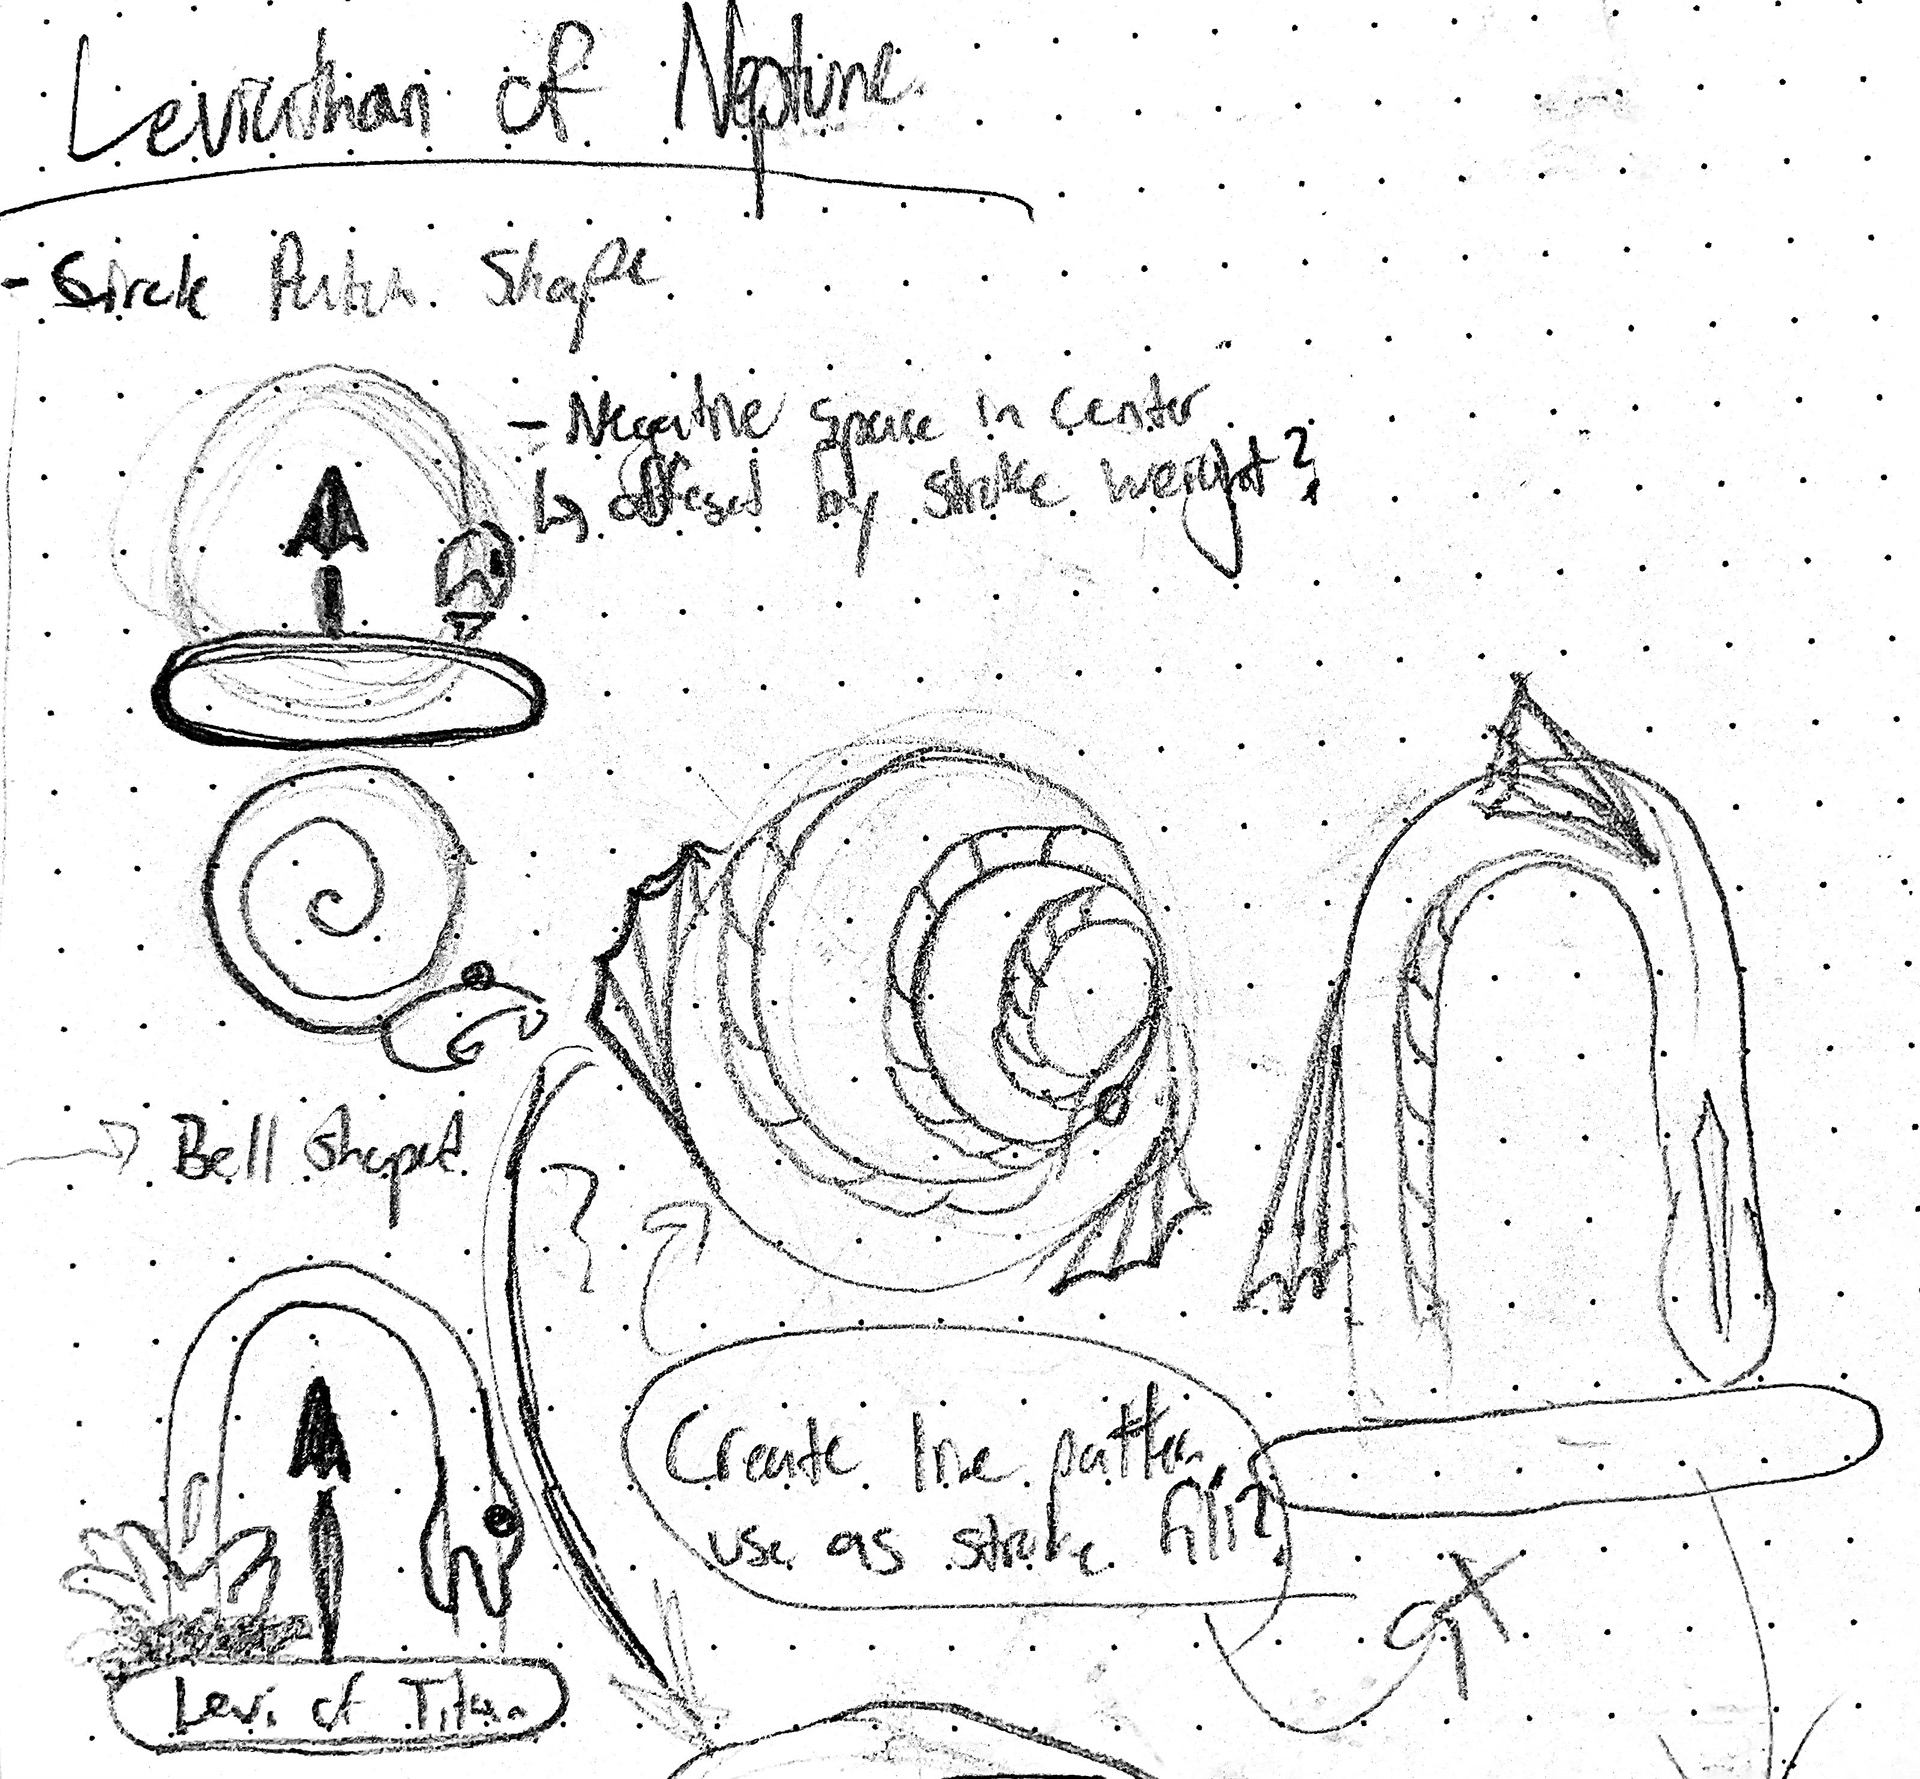 Leviathan of Neptune
- Circle Patch Shape
- Negative space in center
↳ offesed by stroke weight?
→ Bell Shaped
?
Create line pattern
use as stroke fill?
Levi. of Titan